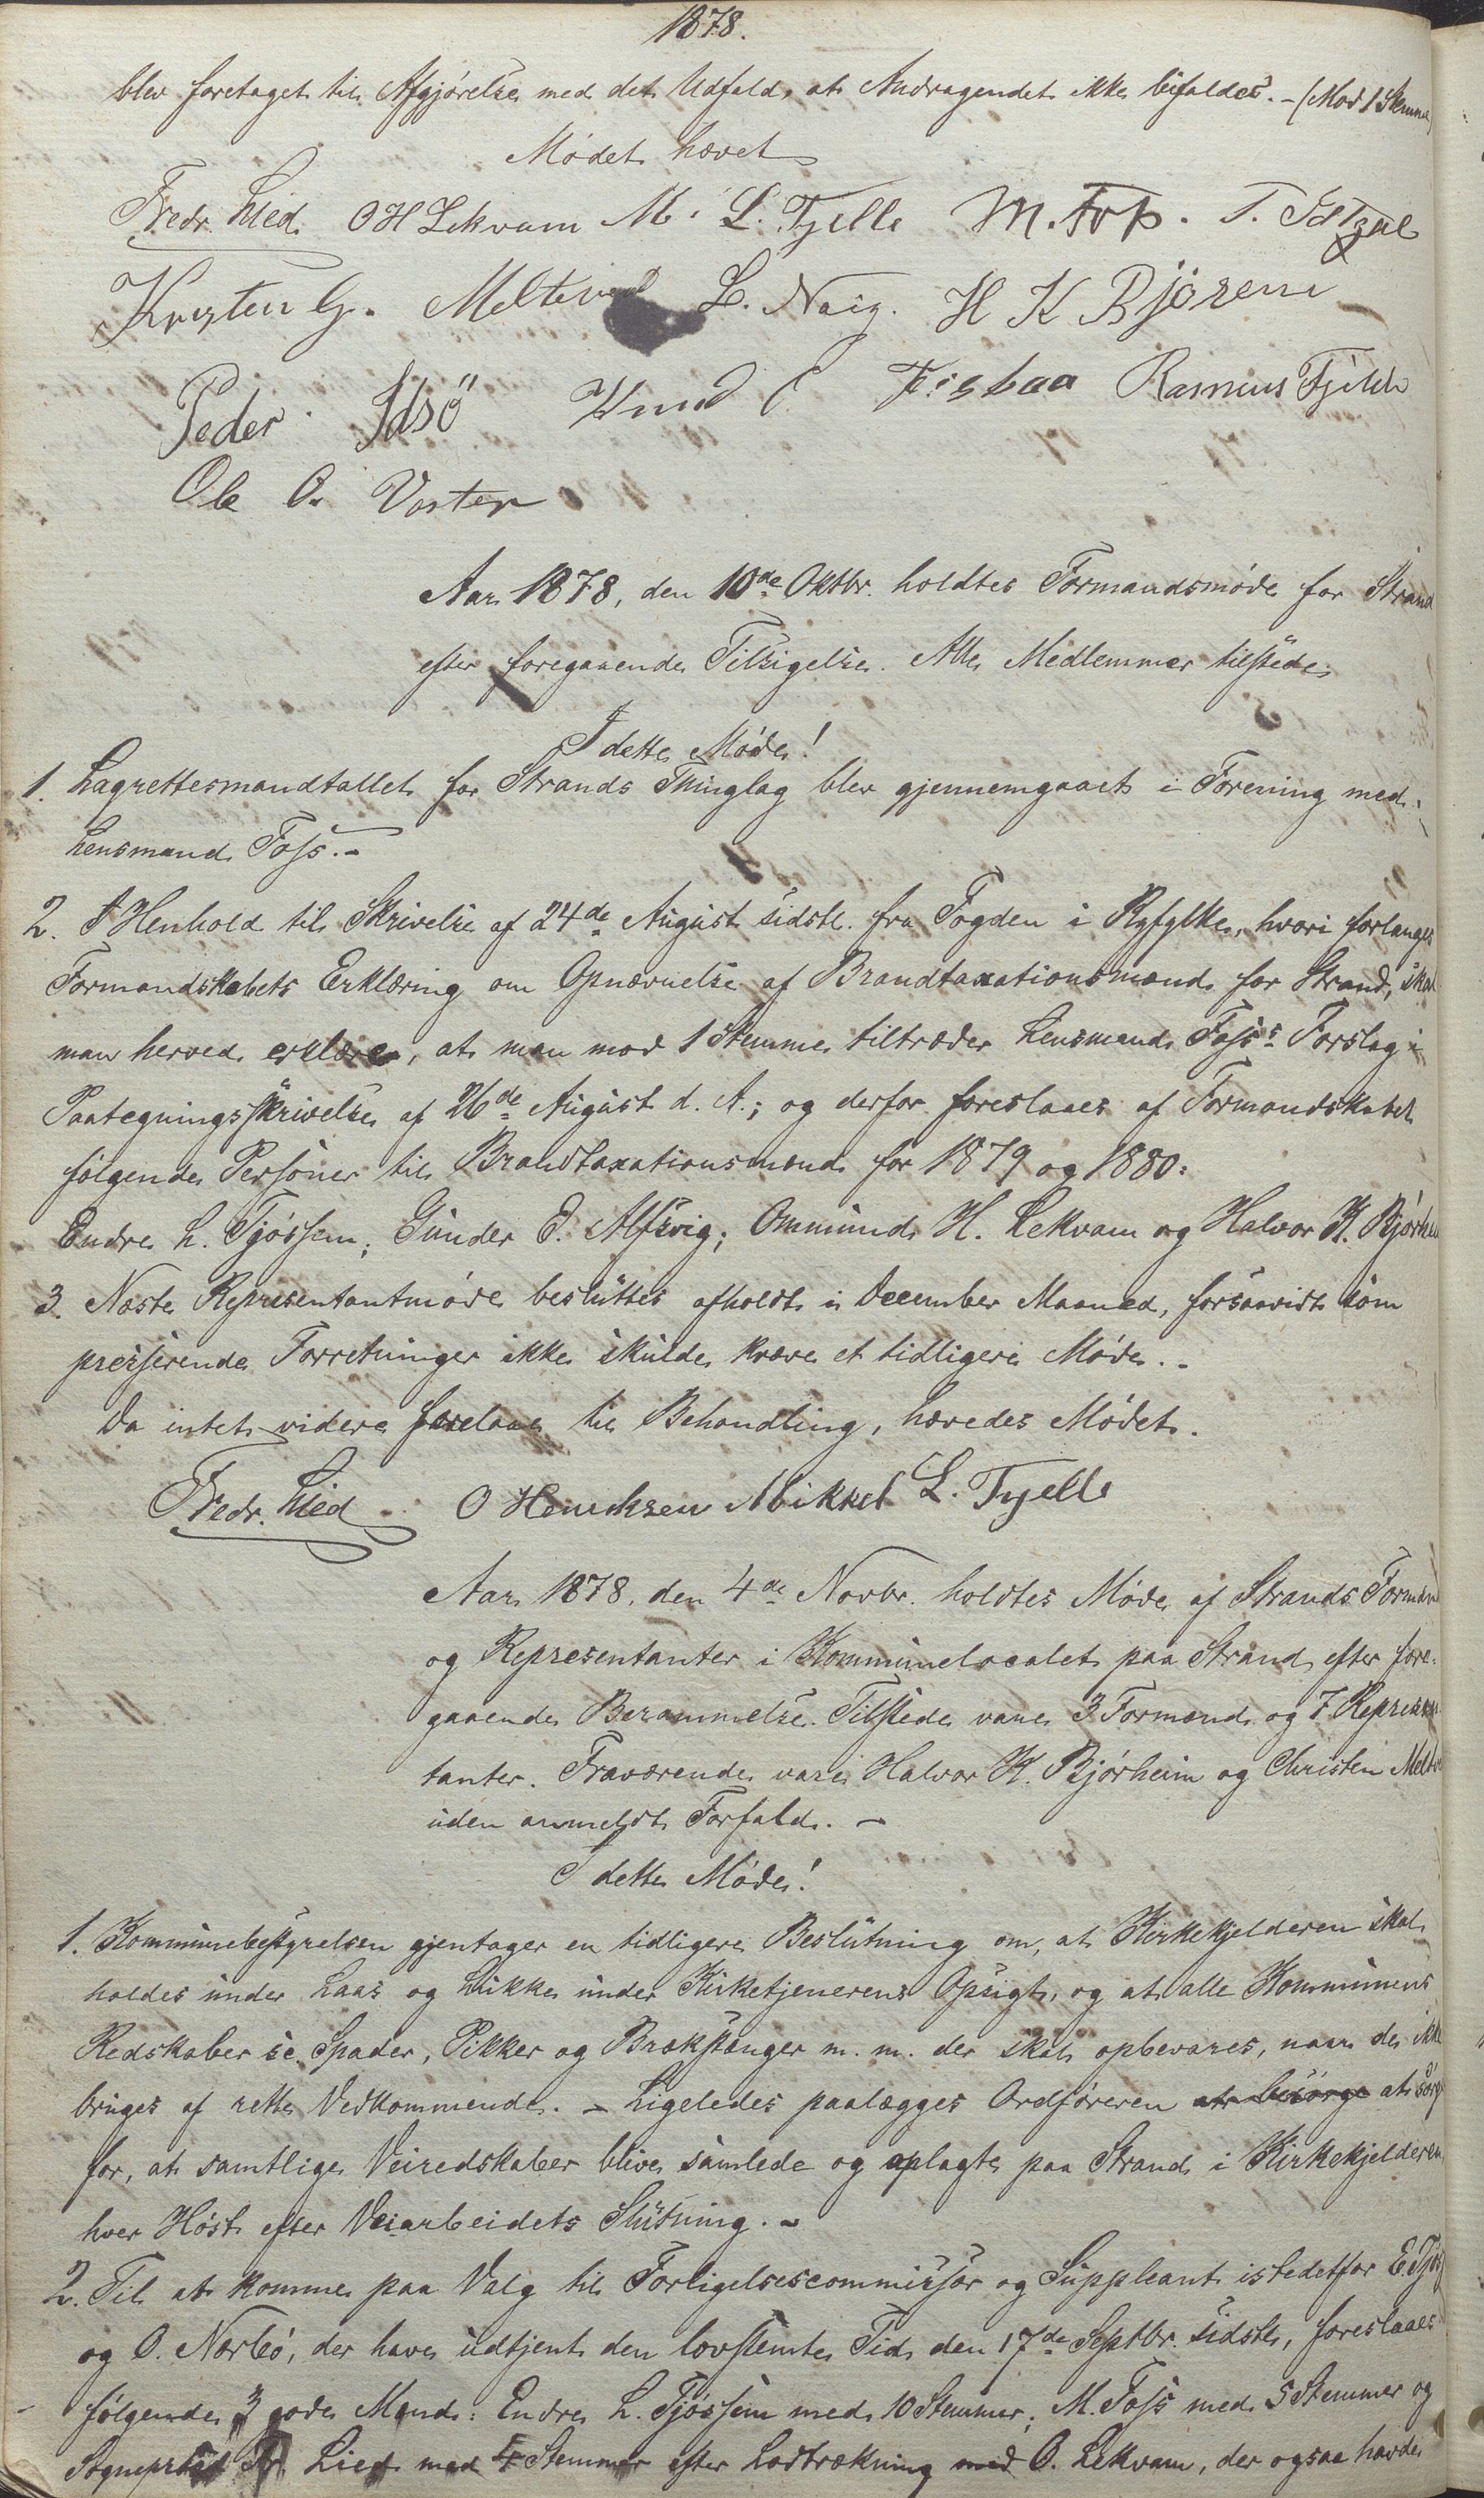 1878.
blev foretaget til Afgjørelse med det Udfald, at Andragendet ikke bifaldes. - (Mod 1 Stemme)
Mødet hævet
Fredr. Lied. O H Lekvam M. L. Tjelle M. Fos. T.
Kristen G. Melteved L. Nag. H K Bjørem
Peder Idsö Knud E Fiskaa Rasmus Fjelde
Ole O. Voster
Aar 1878, den 10de Oktbr. holdtes Formandsmøde for Strand
efter foregaaende Tilsigelse. Alle Medlemmer tilstede.
I dette Møde!
1. Lagrettesmandtallet for Strands Thinglag blev gjennemgaaet i Forening med
Lensmand Foss. -
2. I Henhold til Skrivelse af 24de August sidstl. fra Fogden i Ryfylke, hvori forlanges
Formandskabets Erklæring om Opnævnelse af Brandtaxationsmænd for Strand, skal
man herved erklære, at man mod 1 Stemme tiltræder Lensmand Foss's Forslag i
Paategningsskrivelse af 26de August d. A.; og derfor foreslaaes af Formandskabet
følgende Personer til Brandtaxationsmænd for 1879 og 1880:
Endre L. Tjøssem; Gunder E. Alfsvig; Ommund H. Lekvam og Halvor K. Bjørheim
3. Næste Representantmøde besluttes afholdt i December Maaned, forsaavidt som
presserende Forretninger ikke skulde kræve et tidligere Møde. -
Da intet videre forelaae til Behandling, hævedes Mødet.
Fredr. Lied O Henriksen Mikkel L. Tjelle
Aar 1878, den 4de Novbr. holdtes Møde af Strands Formænd
og Representanter i Kommunelocalet paa Strand efter fore-
gaaende Berammelse. Tilstede vare 3 Formænd og 7 Represen-
tanter. Fraværende vare Halvor K. Bjørheim og Christen Meltev
uden anmeldt Forfald. -
I dette Møde!
1. Kommunebestyrelsen gjentager en tidligere Beslutning om, at Kirkekjelderen skal
holdes under Laas og Lukke under Kirketjenerens Opsigt, og at alle Kommunens
Redskaber sc. Spader, Pikker og Brækstænger m. m. der skal opbevares, naar de ikke
bruges af rette Vedkommende. - Ligeledes paalægges Ordføreren at besørge at sørge
for, at samtlige Veiredskaber blive samlede og oplagte paa Strand i Kirkekjelderen
hver Høst efter Veiarbeidets Slutning. -
2. Til at komme paa Valg til Forligelsescommissær og Suppleant istedetfor E. Tjøs
og O. Nærbø, der have udtjent den lovstemte Tid den 17de Septbr. sidstl., foreslaaes
følgende 3 gode Mænd: Endre L. Tjøssem med 10 Stemmer; M. Foss med 5 Stemmer og
Sogneprest Fr. Lied med 4 Stemmer efter Lodtrækning med O. Lekvam, der ogsaa havde